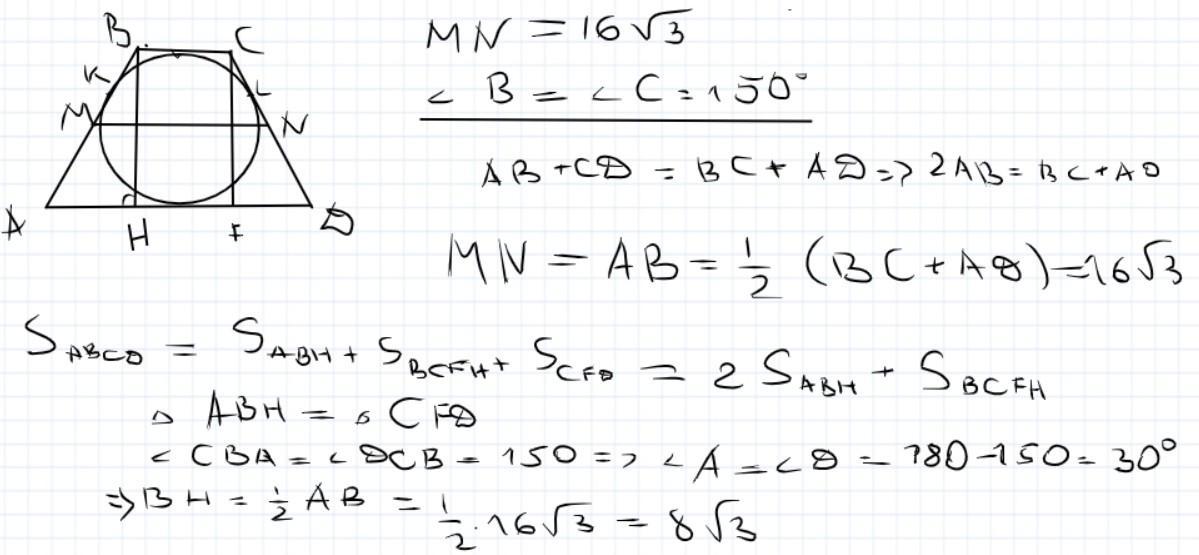 B C
K L
M N
A H F D
MN = 16√3
∠ B = ∠ C = 150°
AB + CD = BC + AD => 2AB = BC + AD
MN = AB = 1/2 (BC + AD) = 16√3
S_ABCD = S_ABH + S_BCFH + S_CFD = 2 S_ABH + S_BCFH
△ ABH = △ CFD
∠ CBA = ∠ DCB = 150 => ∠ A = ∠ D = 180 - 150 = 30°
=> BH = 1/2 AB = 1/2 · 16√3 = 8√3